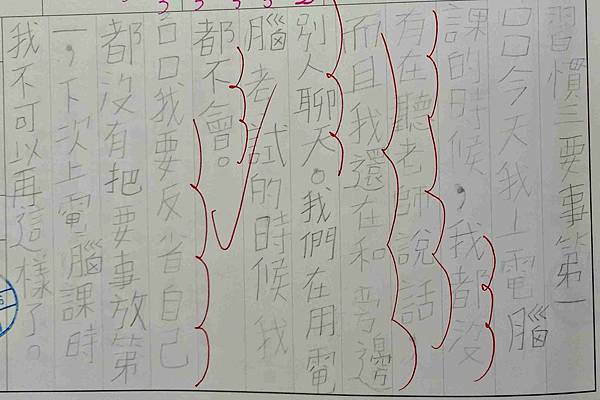 習慣三要事第一
口口今天我上電腦
課的時候，我都沒
有在聽老師說話
而且我還在和旁邊
別人聊天。我們在用電
腦考試的時候我
都不會。
口口我要反省自己
都沒有把要事放第
一，下次上電腦課時
我不可以再這樣了。